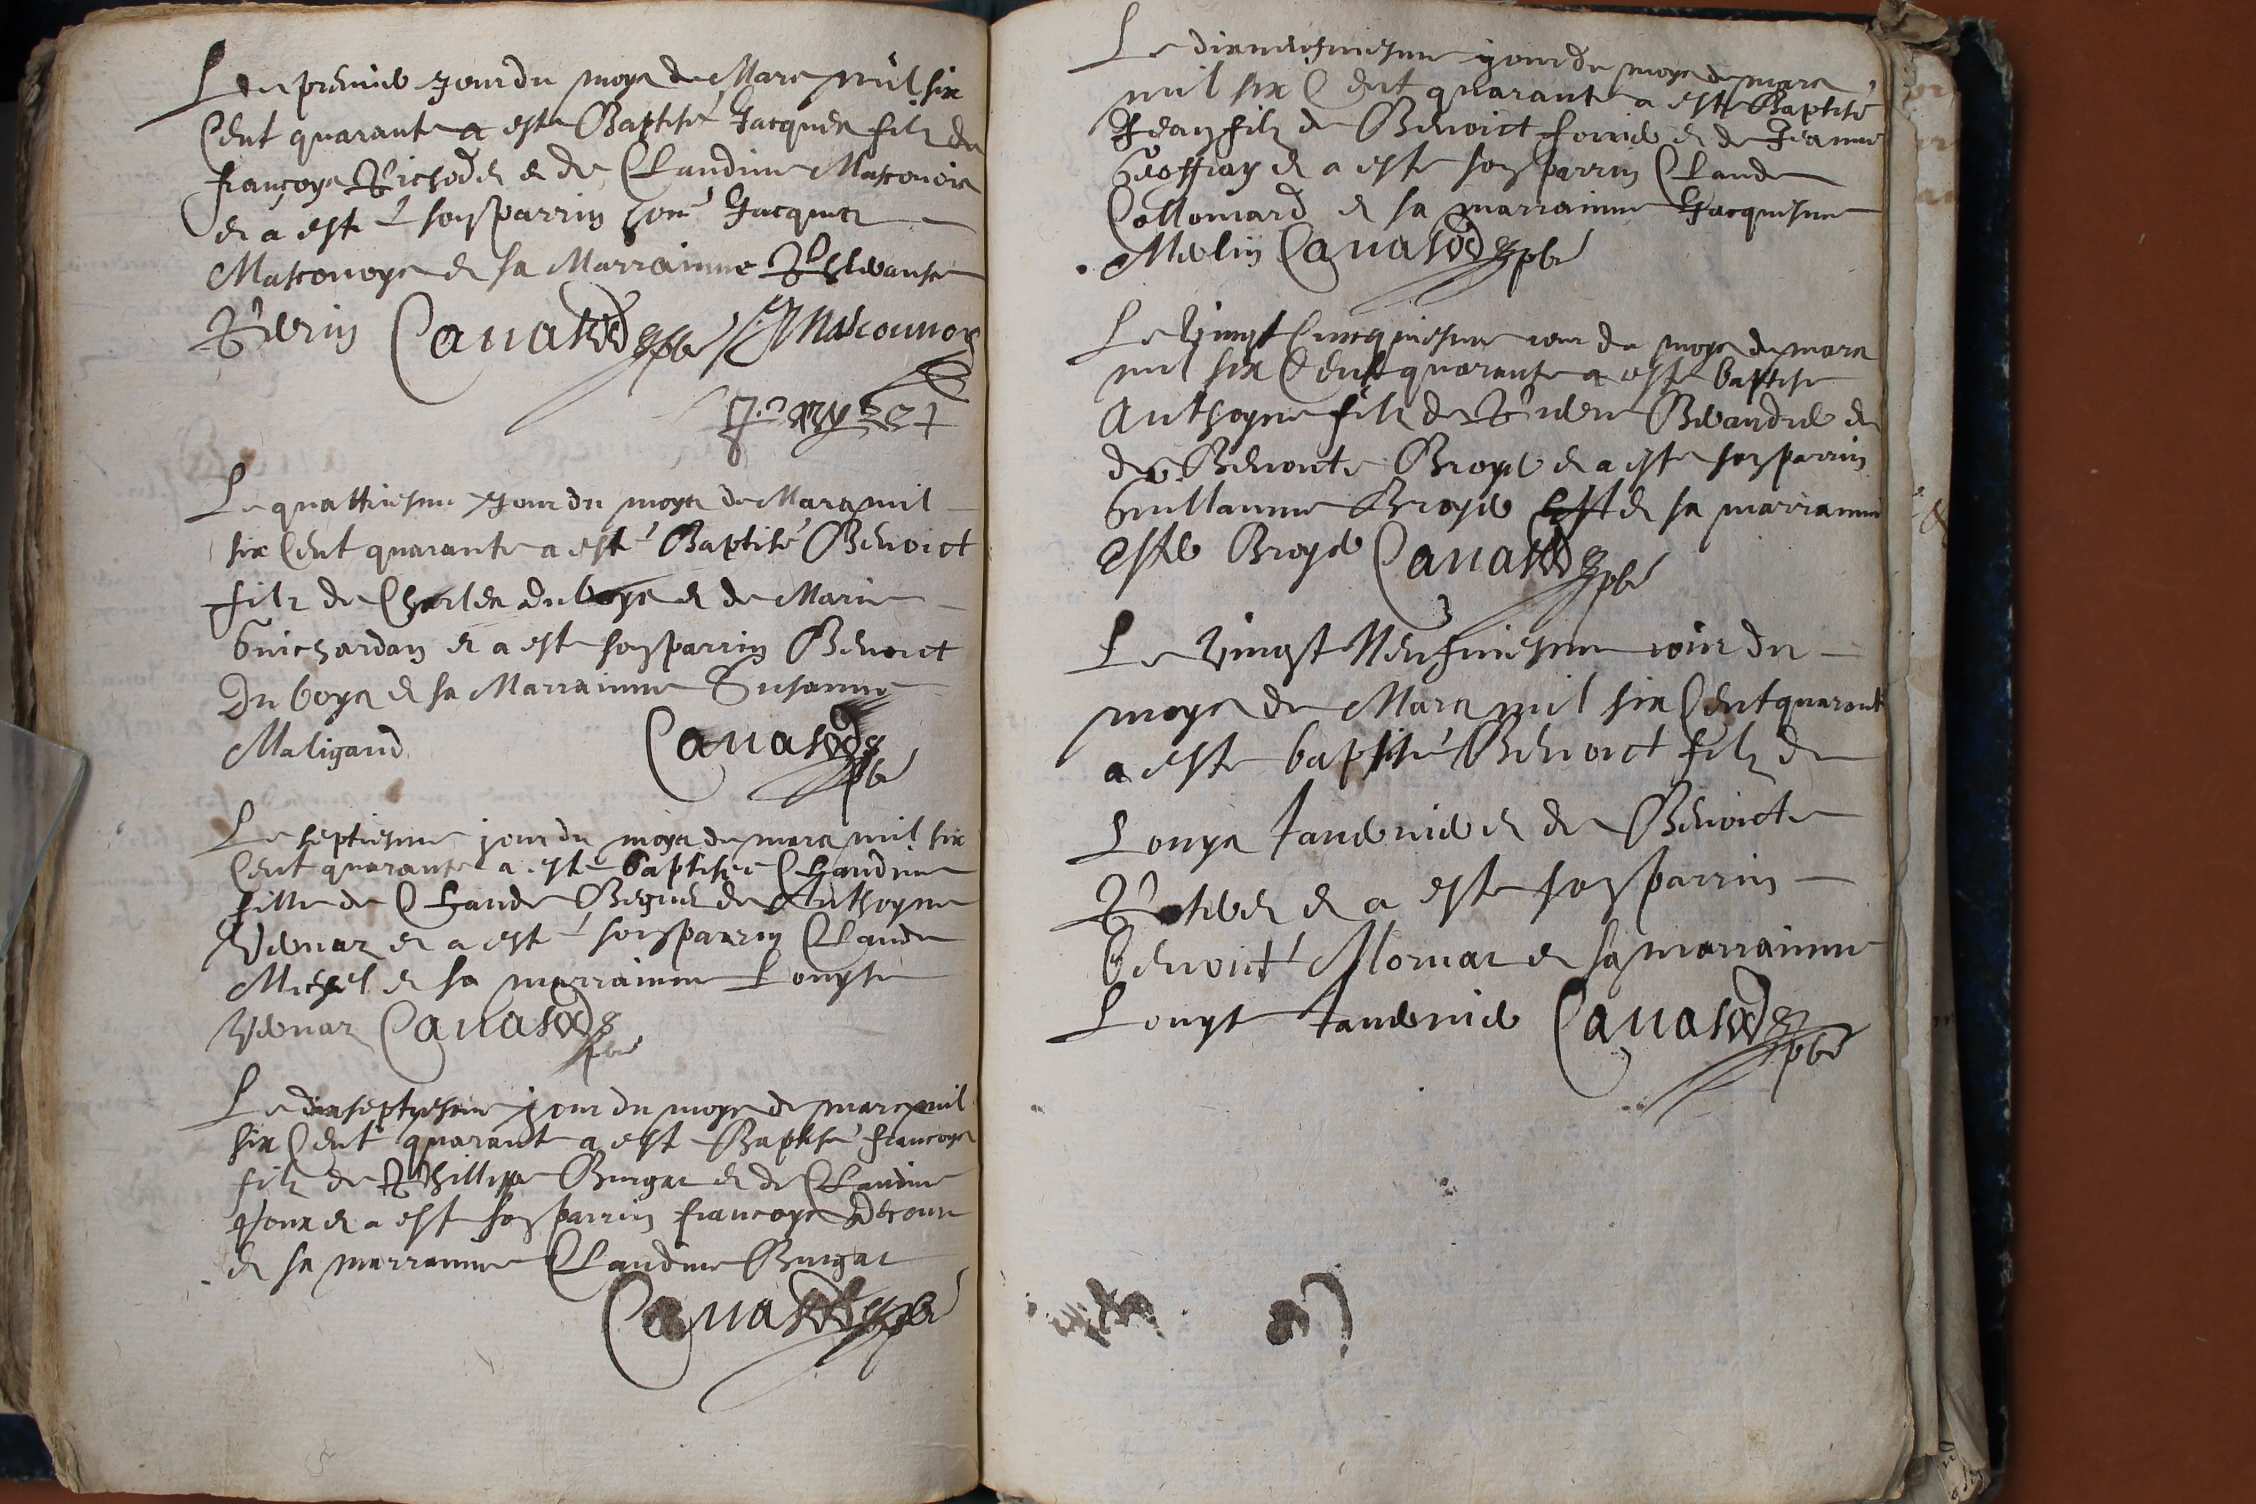 Le premier jour du moys de Mars mil six
Cent quarante a este Baptisé Jacques filz de
françoys Richod et de Claudine Masconois
et a esté son parrin hon. Jacques
Masconoys et sa Marrainne
Canard pbr Masconnoys
Le quattriesme Jour du moys de Mars mil
six Cent quarante a esté Baptisé Benoict
filz de Charles duboys et de Marie
Guichardan et a este son parrin Benoict
Du boys et sa Marrainne Susanne
Maligand
pbr
Le septiesme jour du moys de mars mil six
Cent quarante a esté baptisée Claudine
fille de Claude Begue et de Anthoyne
et a esté son parrin Claude
Michel et sa marrainne Louyse
pbr
Le dixseptiesme jour du moys de mars mil
six Cent quarante a este Baptisé francoys
filz de Phillippe Burgat et de Claudine
et a este son parrin francoys
et sa marrainne Claudine Burgat
pbr
Le jour du moys de mars
mil six Cent quarante a este Baptisé
Jean filz de Benoict et de Jeanne
Geoffray et a este son parrin Claude
Collomard et sa marrainne Jacquesme
Merlin pbr
Le Vingt Cincquiesme iour du moys de mars
mil six Cent quarante a este baptise
Anthoyne filz de et
de Benoiste Broyer et a este son parrin
Guillaume Broyer et sa marrainne
Broyer pbr
Le Vingt Neufviesme iour du
moys de Mars mil six Cent quarante
a este baptisé Benoict filz de
Louys Tavernier et de Benoicte
et a este son parrin
Benoict Mornat et sa marrainne
Louyse Tavernier pbr